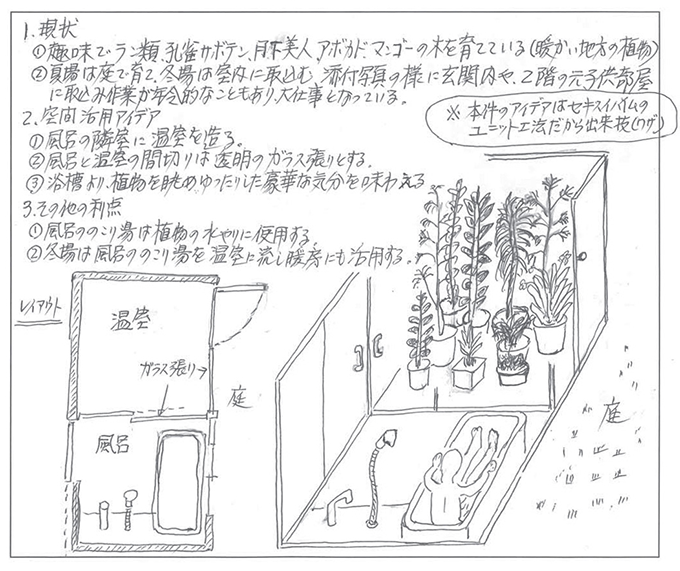 1.現状
①趣味でラン類、孔雀サボテン、月下美人、アボカド、マンゴーの木を育てている(暖かい地方の植物)
②夏場は庭で育て、冬場は室内に取込む。添付写真の様に玄関内や、2階の元子供部屋
に取込み作業が年令的なこともあり、大仕事となっている。
2.空間活用アイデア
※本件のアイデアはセキスイハイムの
ユニット工法だから出来技(ワザ)
①風呂の隣室に温室を造る。
②風呂と温室の間切りは透明のガラス張りとする。
③浴槽より、植物を眺め、ゆったりした豪華な気分を味わえる
3.その他の利点
①風呂ののこり湯は植物の水やりに使用する
②冬場は風呂ののこり湯を温室に流し暖房にも活用する。
レイアウト
温室
ガラス張り
庭
風呂
庭